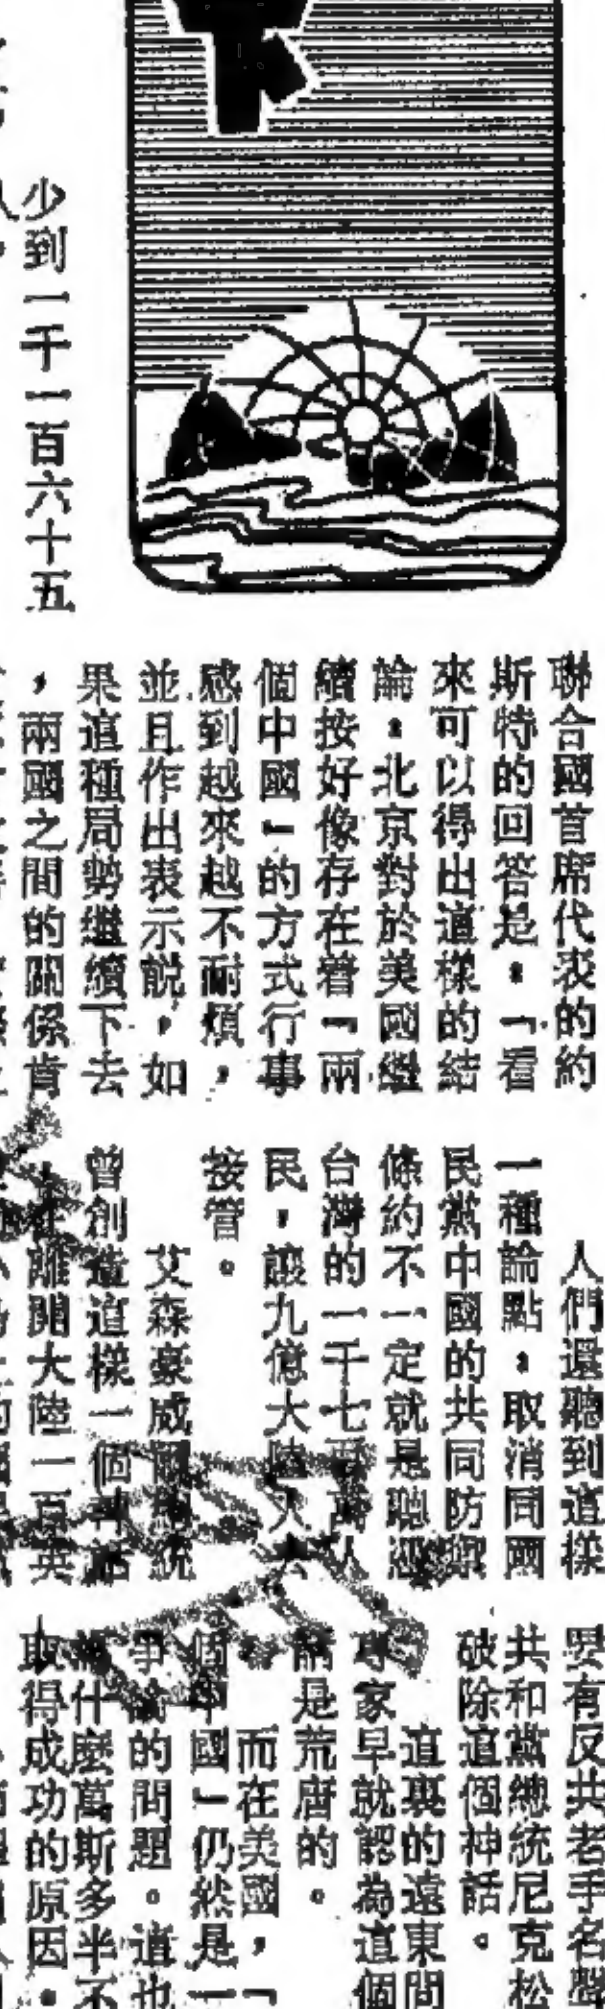 少到一千一百六十五
人。
聯合國首席代表的約
斯特的回答是：「看
來可以得出這樣的結
論：北京對於美國繼
續按好像存在着「兩
個中國」的方式行事
感到越來越不耐煩，
並且作出表示說，如
果這種局勢繼續下去
，兩國之間的關係肯
人們還聽到這樣
一種論點：取消同國
民黨中國的共同防禦
條約不一定就是聽憑
台灣的一千七百萬人
民，讓九億大陸人去
接管。
艾森豪威爾總統
曾創造這樣一個神話
離開大陸一百英
要有反共老手名聲
共和黨總統尼克松
破除這個神話。
這裏的遠東問
專家早就認為這個
話是荒唐的。
而在美國，「
個中國」仍然是一
爭論的問題。這也
什麼萬斯多半不
取得成功的原因。